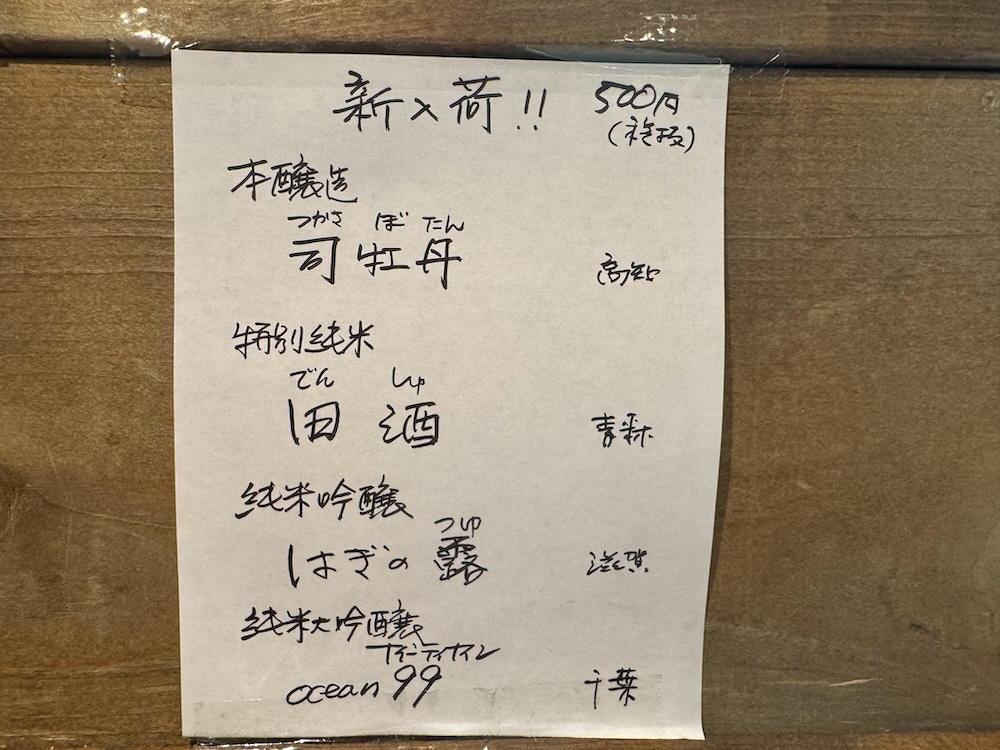 新入荷!! 500円
(税抜)
本醸造
つかさ ぼ たん
司牡丹 高知
特別純米
でん しゅ
田酒 青森
純米吟醸
つゆ
はぎの露 滋賀
純米大吟醸
ナインティナイン
ocean 99 千葉